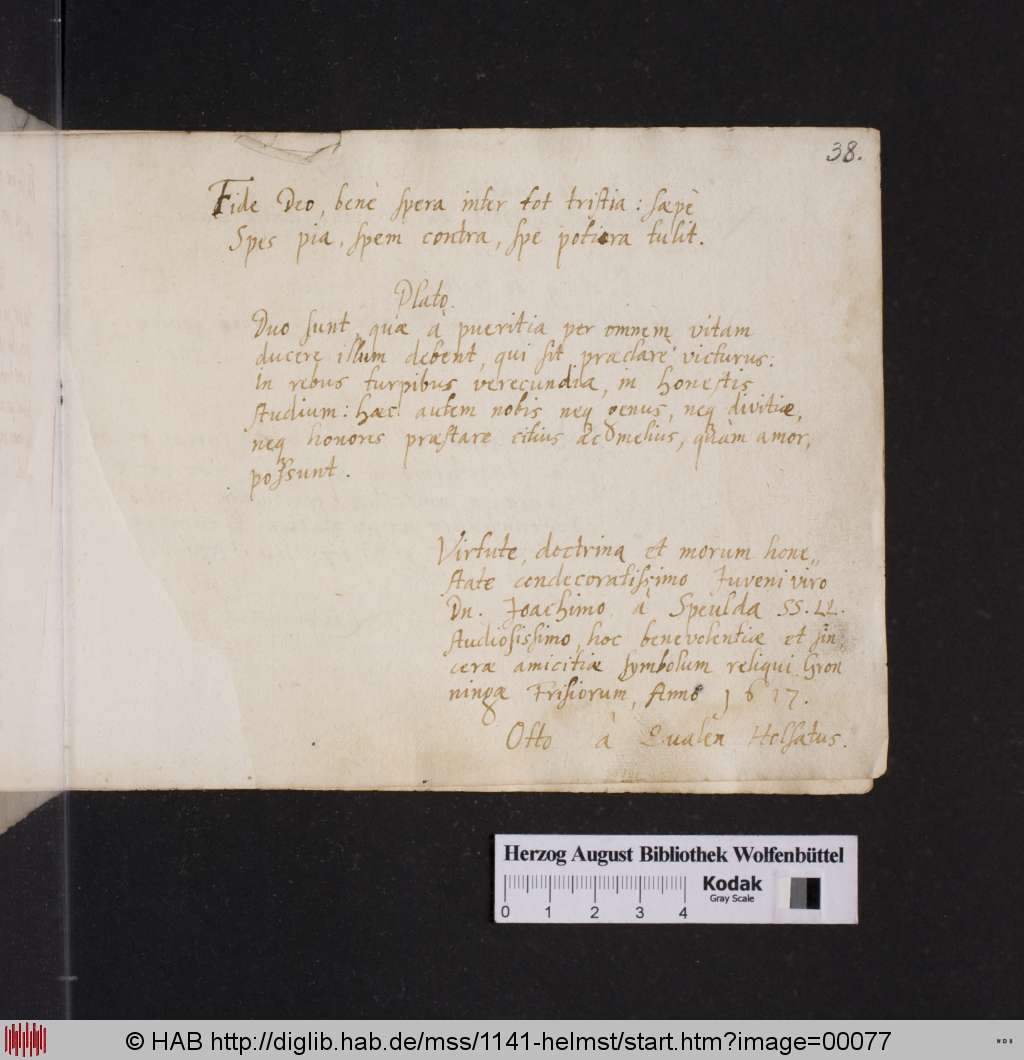 38.
Fide Deo, benè spera inter tot tristia: sæpè
Spes pia, spem contra, spe potiora tulit.
Plato.
Duo sunt, quæ à pueritia per omnem vitam
ducere illum debent, qui sit præclarè victurus:
in rebus turpibus verecundia, in honestis
studium: hæc autem nobis neq genus, neq divitiæ,
neq honores præstare citius ac melius, quàm amor,
possunt.
Virtute, doctrina et morum hone„
state condecoratissimo Juveni viro
Dn. Joachimo à Speulda SS. LL.
studiosissimo, hoc benevolentiæ et sin
ceræ amicitiæ symbolum reliqui Gron
ningæ Frisiorum, Anno 1617.
Otto à Qualen Holsatus.
Herzog August Bibliothek Wolfenbüttel
Kodak
Gray Scale
0 1 2 3 4
© HAB http://diglib.hab.de/mss/1141-helmst/start.htm?image=00077